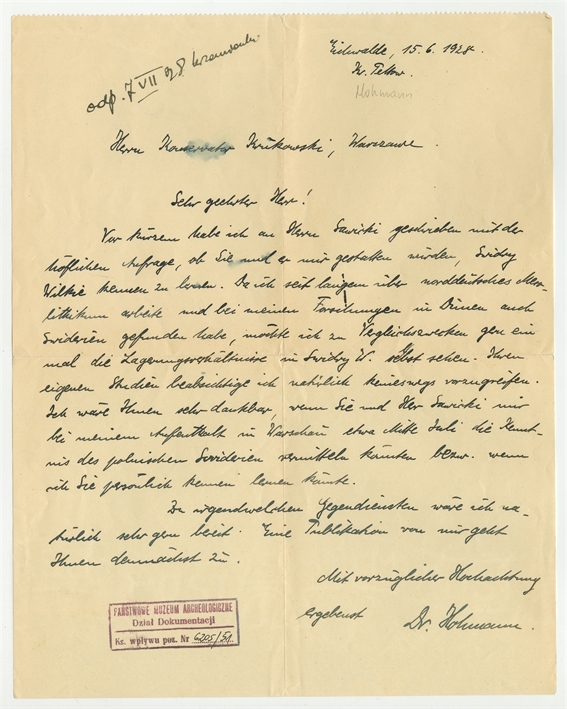 odp. 7 VII 28
Eichwalde, 15.6.1928.
Kr. Teltow.
Hohmann
Herrn Konservator Krukowski, Warszawa.
Sehr geehrter Herr!
Vor kurzem habe ich an Herrn Sawicki geschrieben mit der
höflichen Anfrage, ob Sie und er mir gestatten würden, Swidry
Wilkie kennen zu lernen. Da ich seit langem über norddeutsches Meso-
lithikum arbeite und bei meinen Forschungen in Dünen auch
Swiderien gefunden habe, möchte ich zu Vergleichszwecken gern ein
mal die Lagerungsverhältnisse in Swidry W. selbst sehen. Ihren
eigenen Studien beabsichtige ich natürlich keineswegs vorzugreifen.
Ich wäre Ihnen sehr dankbar, wenn Sie und Herr Sawicki mir
bei meinem Aufenthalt in Warschau etwa Mitte Juli die Kennt-
nis des polnischen Swiderien vermitteln könnten bezw. wenn
ich Sie persönlich kennen lernen könnte.
Zu irgendwelchen Gegendiensten wäre ich na-
türlich sehr gern bereit. Eine Publikation von mir geht
Ihnen demnächst zu.
Mit vorzüglicher Hochachtung
ergebenst Dr. Hohmann.
PAŃSTWOWE MUZEUM ARCHEOLOGICZNE
Dział Dokumentacji
Ks. wpływu poz. Nr 6205/51